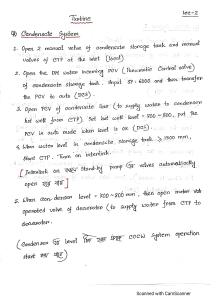 Lec-2
Turbine
Condensate System
1. Open 2 manual valve of condensate storage tank and manual
valves of CTP at the inlet (local)
2. Open the DM water incoming POV (Pneumatic Control valve)
of condensate storage tank. Input SP: 6000 and then transfer
the POV to auto (DCS).
3. Open POV of condensate line (to supply water to condenser
hot well from CTP). Set hot well level = 700-800, put the
POV in auto mode when level is ok (DCS).
4. When water level in condensate storage tank > 1500 mm,
start CTP. Turn on interlock.
[Interlock on stand-by pump valves automatically
open
5. When condenser level = 700-800 mm, then open motor
operated valve of deaerator (to supply water from CTP to
deaerator.
(Condenser level CCCW system operation
start
Scanned with CamScanner